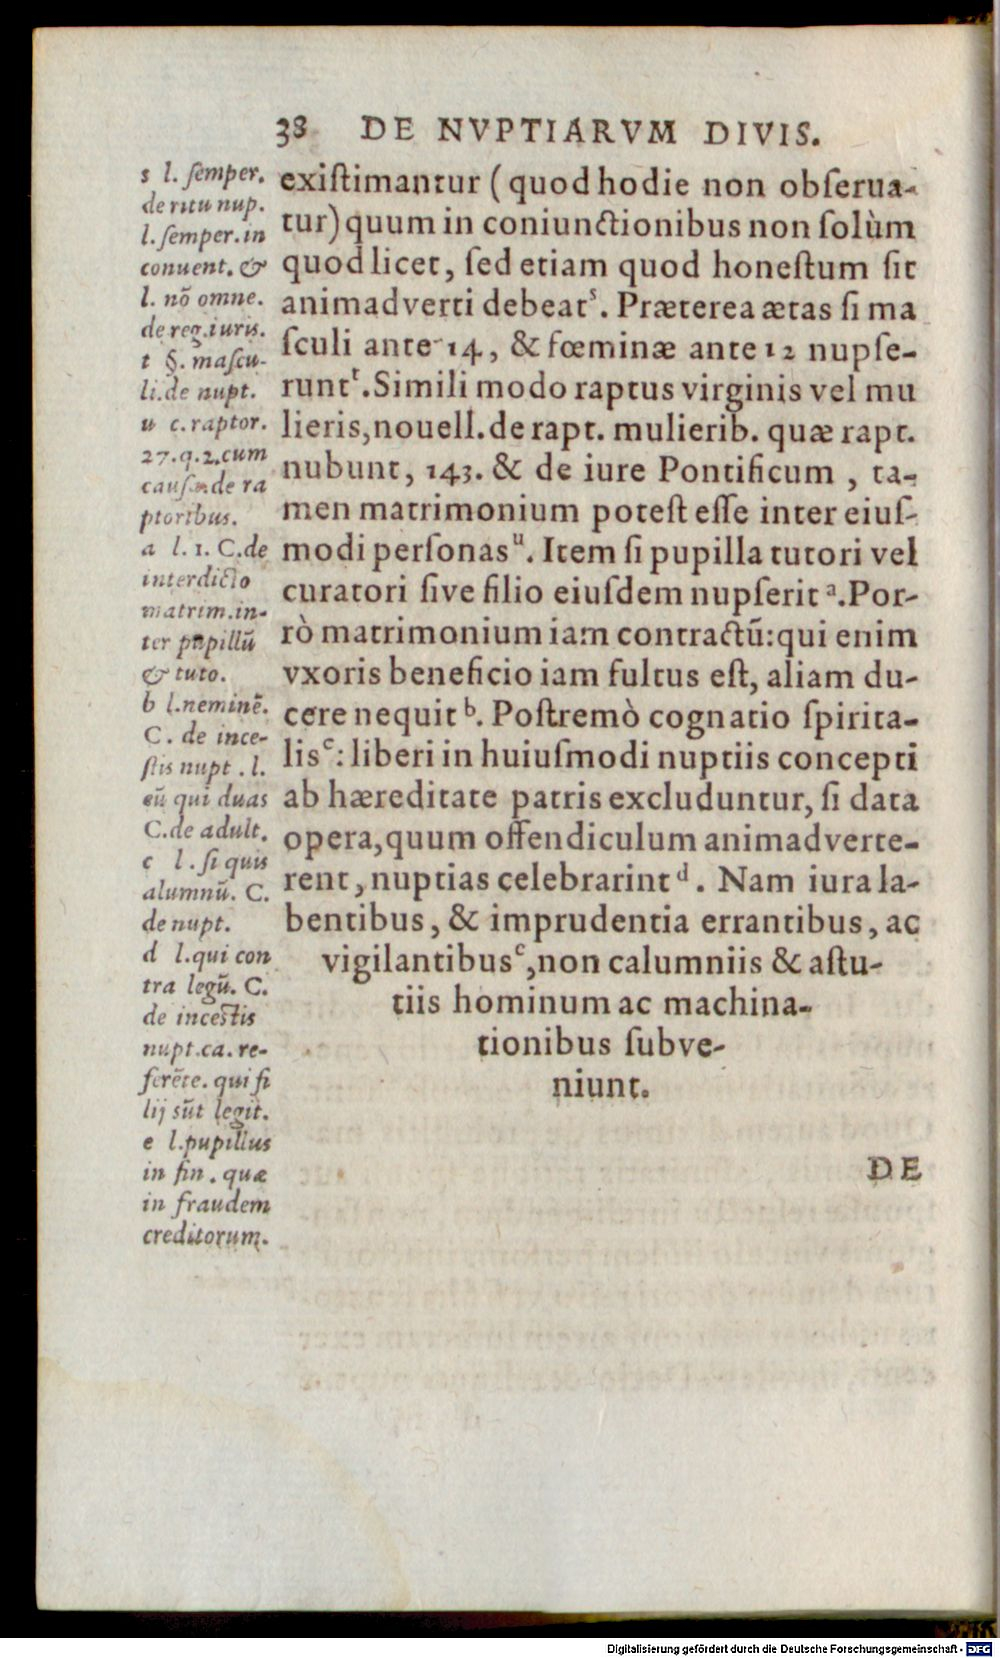 38 DE NVPTIARVM DIVIS.
existimantur (quod hodie non obserua-
tur) quum in coniunctionibus non solùm
quod licet, sed etiam quod honestum sit
animadverti debeat<sup>s</sup>. Præterea ætas si ma
sculi ante 14, & fœminæ ante 12 nupse-
runt<sup>t</sup>. Simili modo raptus virginis vel mu
lieris, nouell. de rapt. mulierib. quæ rapt.
nubunt, 143. & de iure Pontificum, ta-
men matrimonium potest esse inter eius-
modi personas<sup>u</sup>. Item si pupilla tutori vel
curatori sive filio eiusdem nupserit<sup>a</sup>. Por-
rò matrimonium iam contractũ: qui enim
vxoris beneficio iam fultus est, aliam du-
cere nequit<sup>b</sup>. Postremò cognatio spirita-
lis<sup>c</sup>: liberi in huiusmodi nuptiis concepti
ab hæreditate patris excluduntur, si data
opera, quum offendiculum animadverte-
rent, nuptias celebrarint<sup>d</sup>. Nam iura la-
bentibus, & imprudentia errantibus, ac
vigilantibus<sup>e</sup>, non calumniis & astu-
tiis hominum ac machina-
tionibus subve-
niunt.
DE
s l. semper.
de ritu nup.
l. semper. in
conuent. &
l. nõ omne.
de reg. iuris.
t §. mascu-
li. de nupt.
u c. raptor.
27. q. 2. cum
causa. de ra
ptoribus.
a l. 1. C. de
interdicto
matrim. in-
ter pupillũ
& tuto.
b l. neminẽ.
C. de ince-
stis nupt. l.
eũ qui duas
C. de adult.
c l. si quis
alumnũ. C.
de nupt.
d l. qui con
tra legũ. C.
de incestis
nupt. ca. re-
ferẽte. qui fi
lij sũt legit.
e l. pupillus
in fin. quæ
in fraudem
creditorum.
Digitalisierung gefördert durch die Deutsche Forschungsgemeinschaft - DFG